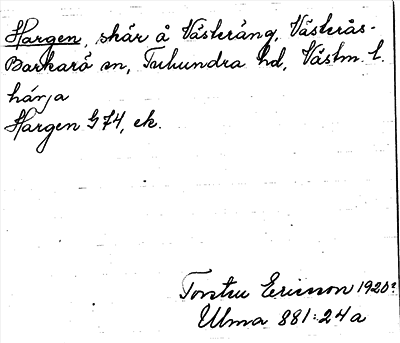 Hargen, skär å Västeräng, Västerås-
Barkarö sn, Tuhundra hd, Västm. l.
hárja
Hargen G 74, ek.
Torsten Ericsson 1920?
Ulma 881:24a